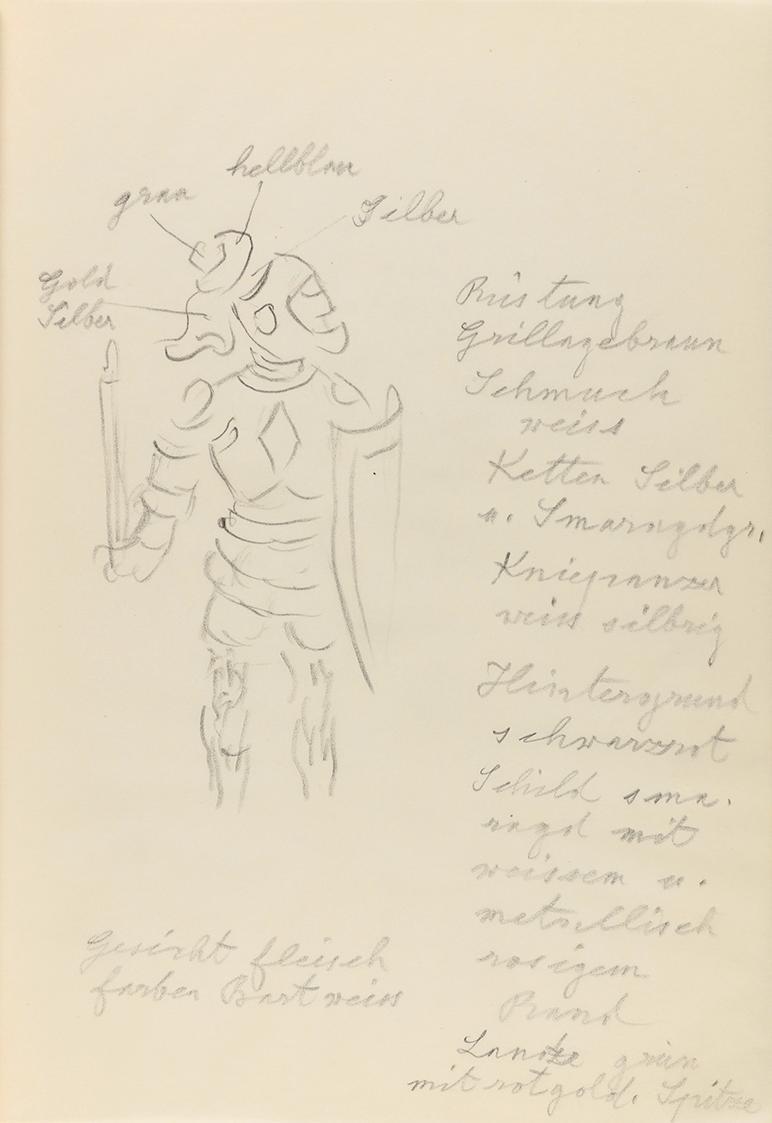 hellblau
grau
Silber
Gold
Silber
Rüstung
Grillagebraun
Schmuck
weiss
Ketten Silber
u. Smaragdgr.
Kniepanzer
weiss silbrig
Hintergrund
schwarzrot
Schild sma.
ragd mit
weissem u.
metallisch
rosigem
Rand
Lanze grün
mit rotgold. Spitze
Gesicht fleisch
farben Bart weiss